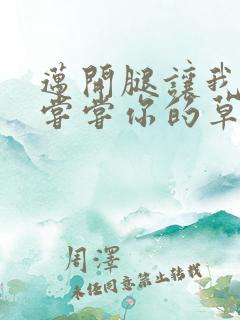 邁開腿讓我
嘗嘗你的草
周澤
未經同意禁止轉載